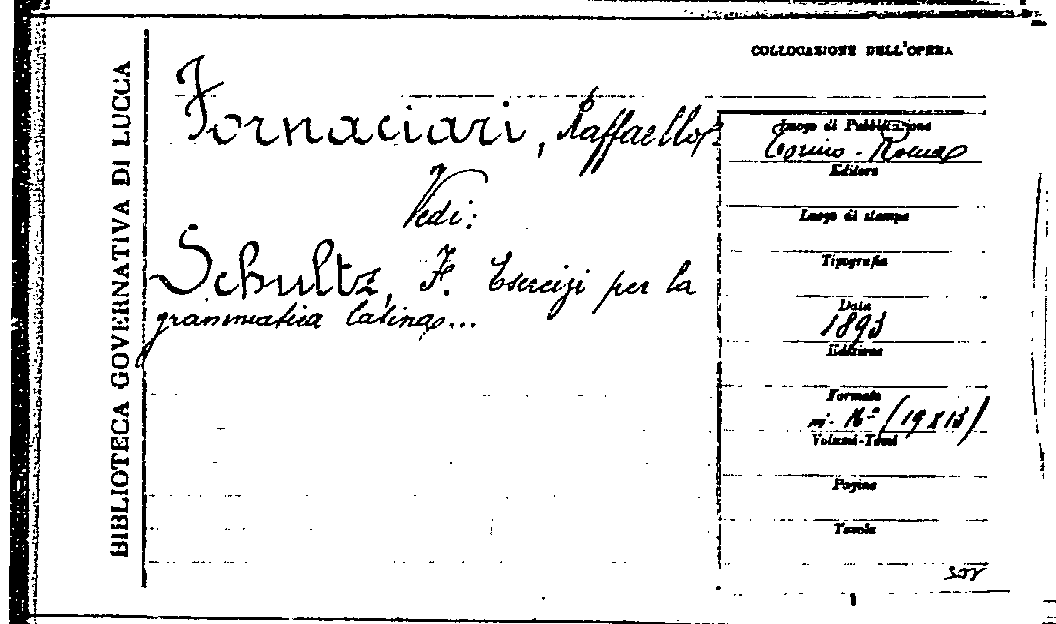 BIBLIOTECA GOVERNATIVA DI LUCCA
Fornaciari, Raffaello
Vedi:
Schultz, F. Esercizi per la
grammatica latina...
COLLOCAZIONE DELL'OPERA
Luogo di Pubblicazione
Torino - Roma
Editore
Luogo di stampa
Tipografia
Data
1893
Edizione
Formato
in-16º (19x13)
Volumi-Tomi
Pagine
Tavole
1